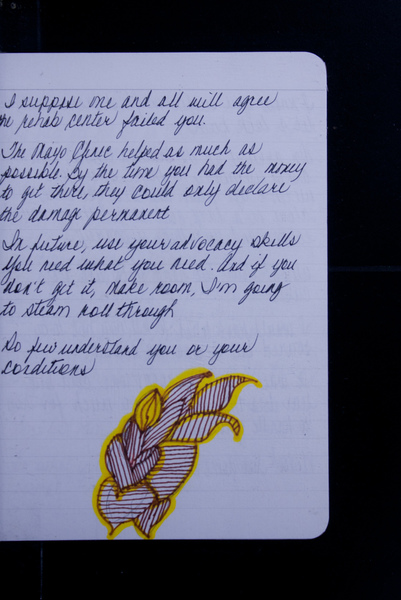 I suppose one and all will agree
he rehab center failed you.
The Mayo Clinic helped as much as
possible. By the time you had the money
to get there, they could only declare
the damage permanent
In future, use your advocacy skills
You need what you need. And if you
don't get it, make room, I'm going
to steam roll through
So few understand you or your
conditions